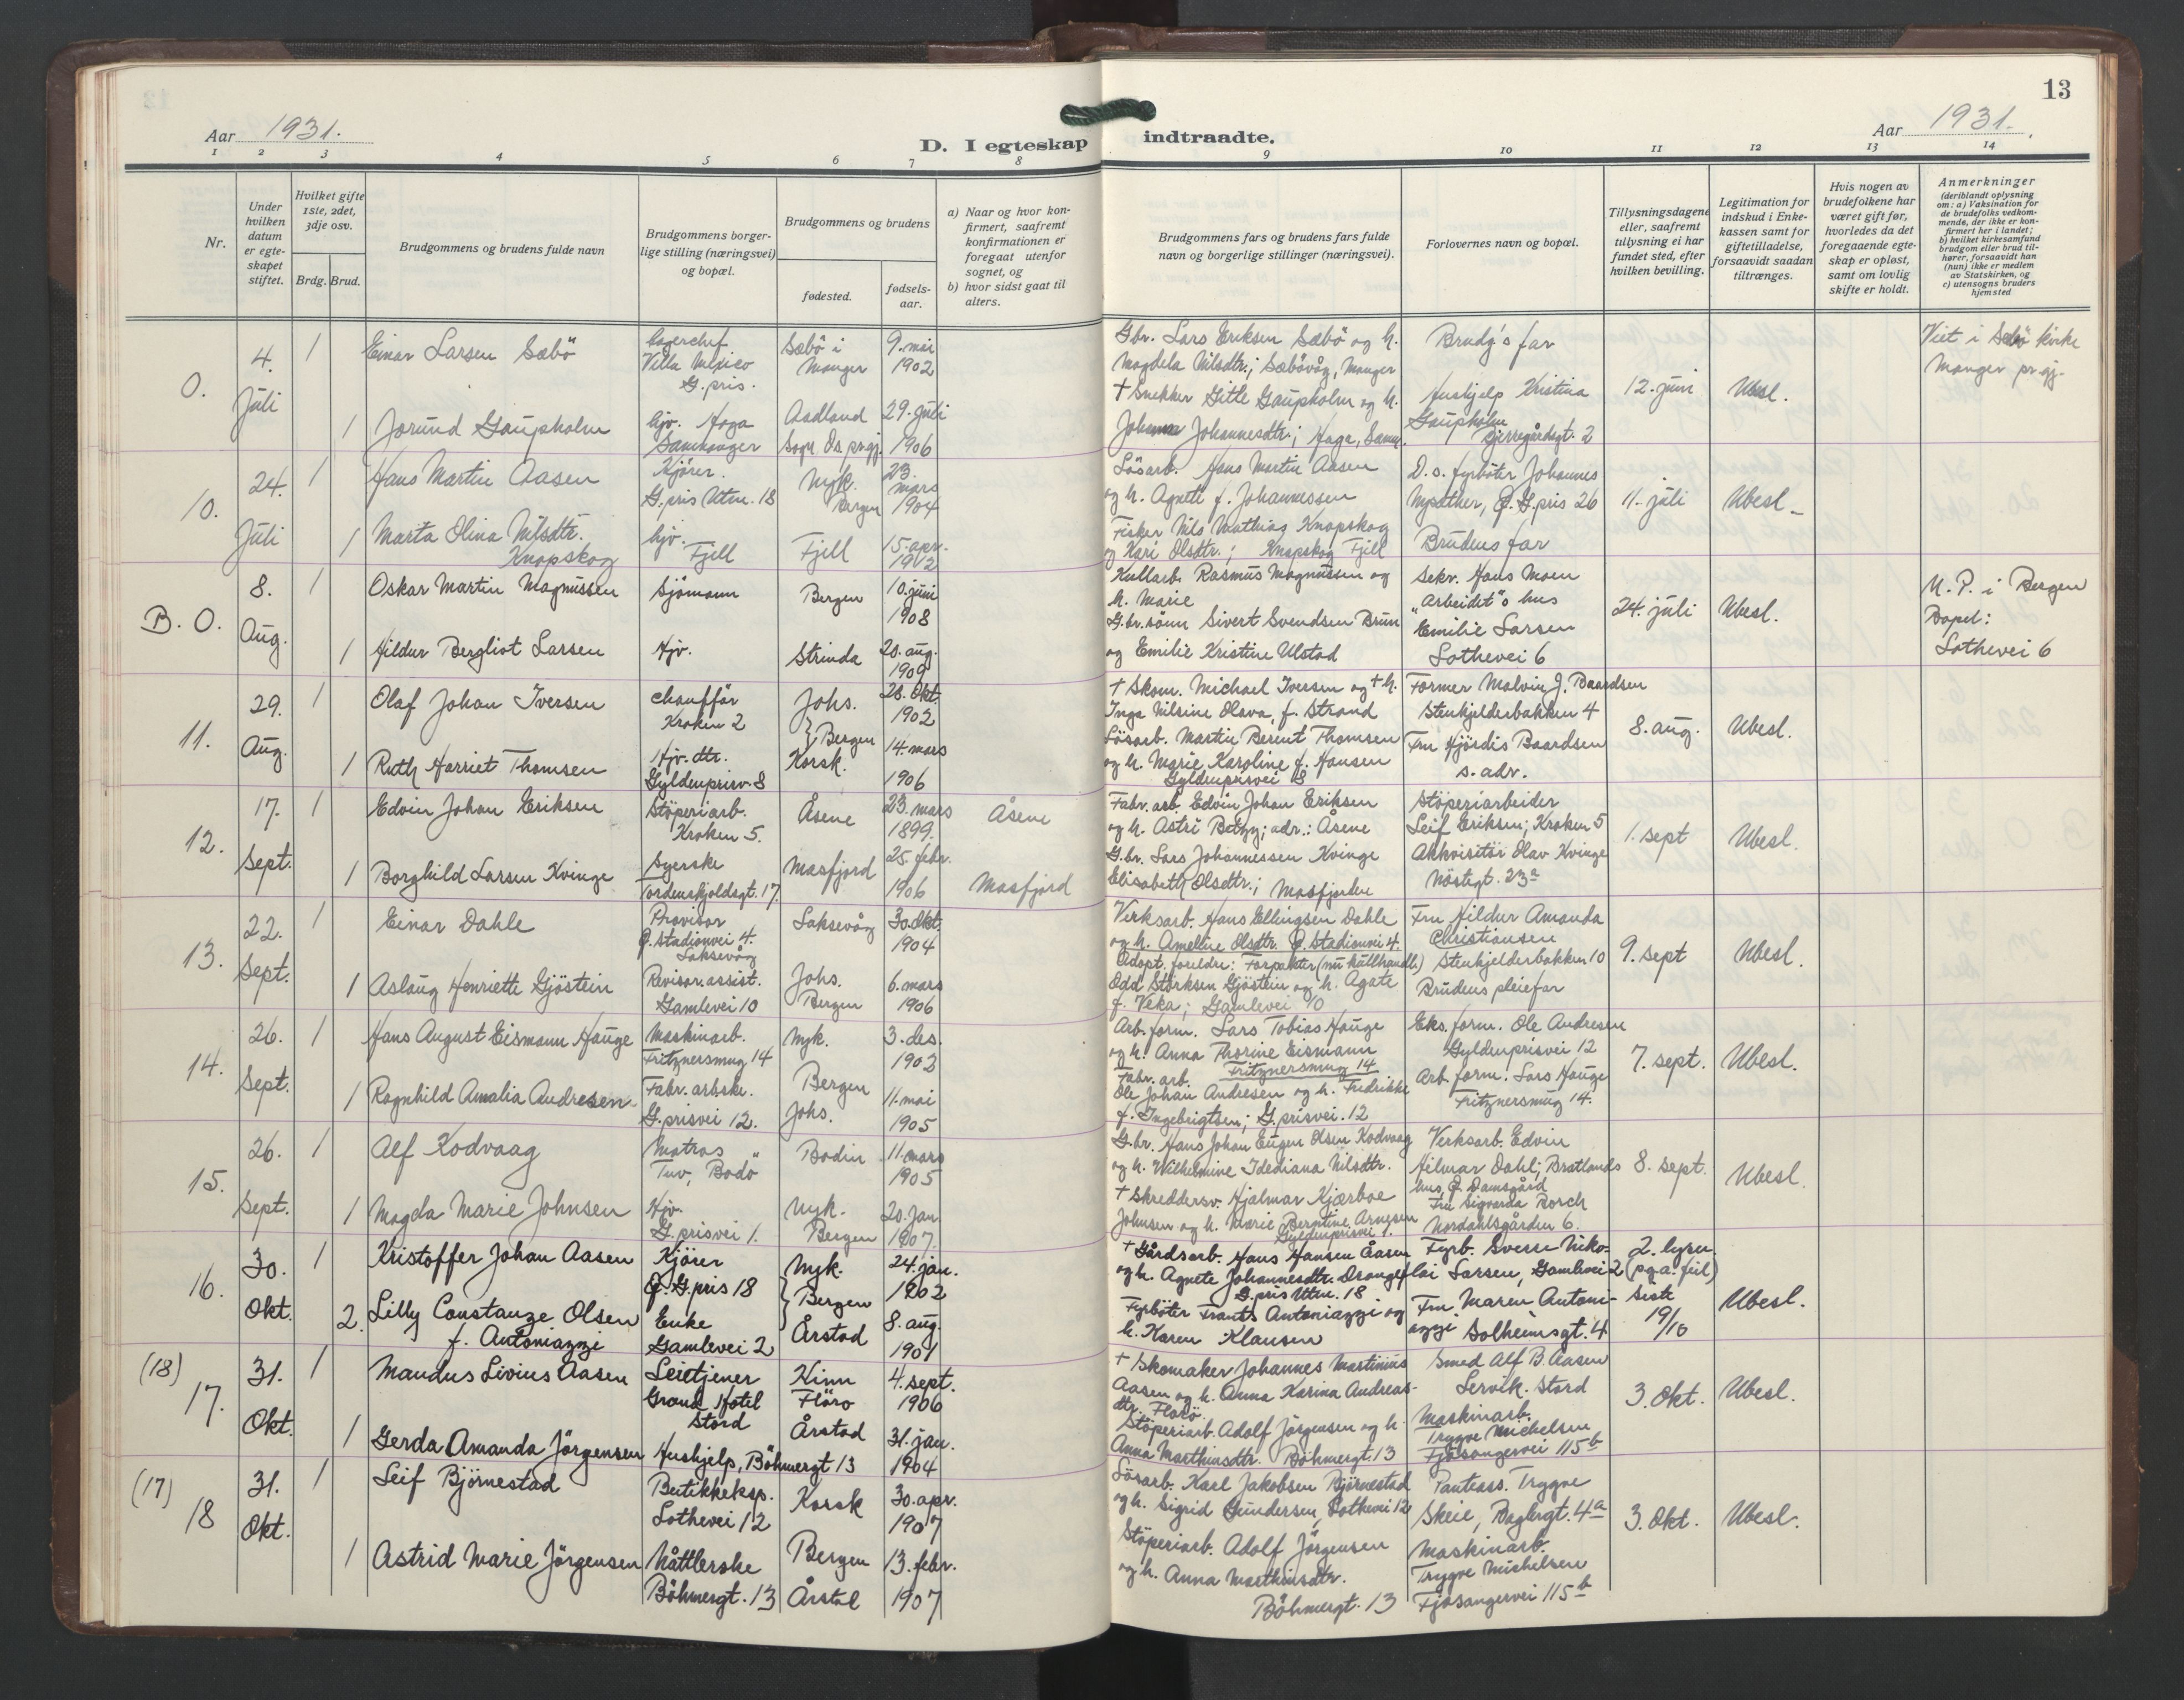 13
Aar 1931.
D. I egteskap indtraadte.
Aar 1931.
1 2 3 4 5 6 7 8 9 10 11 12 13 14
Nr.
Under hvilken datum er egteskapet stiftet.
Hvilket gifte 1ste, 2det, 3dje osv.
Brdg. Brud.
Brudgommens og brudens fulde navn
Brudgommens borgerlige stilling (næringsvei) og bopæl.
Brudgommens og brudens
fødested.
fødselsaar.
a) Naar og hvor konfirmert, saafremt konfirmationen er foregaat utenfor sognet, og
b) hvor sidst gaat til alters.
Brudgommens fars og brudens fars fulde navn og borgerlige stillinger (næringsvei).
Forlovernes navn og bopæl.
Tillysningsdagene eller, saafremt tillysning ei har fundet sted, efter hvilken bevilling.
Legitimation for indskud i Enkekassen samt for giftetilladelse, forsaavidt saadan tiltrænges.
Hvis nogen av brudefolkene har været gift før, hvorledes da det foregaaende egteskap er opløst, samt om lovlig skifte er holdt.
Anmerkninger
(deriblandt oplysning om: a) Vaksination for de brudefolks vedkommende, der ikke er konfirmert her i landet;
b) hvilket kirkesamfund brudgom eller brud tilhører, forsaavidt han (hun) ikke er medlem av Statskirken, og
c) utensogns bruders hjemsted
0.
4. Juli
1 Einar Larsen Sæbö
Lagerchef
Villa Mexico
G.pris.
Sæbö i
Manger
9. mai
1902
Gbr. Lars Eriksen Sæbö og h.
Magdela Nilsdtr.; Sæbövåg, Manger
Brudg's far
12. juni
Ubesl.
Viet i Sæbö kirke
Manger pr.gj.
1 Jorund Gaupholm
hjv. Haga
Samnanger
Aadland
Sogn. Os pr.gj.
29. juli
1906
† Snekker Gitle Gaupholm og h.
Johanna Johannesdtr.; Haga, Samn.
Hushjelp Kristina
Gaupholm
Gjerregårdsgt. 2
10.
24. Juli
1 Hans Martin Aasen
Kjörer.
G.pris Utm. 18
Nyk.
Bergen
23. mars
1904
Lösarb. Hans Martin Aasen
og h. Agnete f. Johannessen
D.s. fyrböter Johannes
Nysæther, G.pris 26
11. juli
Ubesl.
1 Marta Olina Nilsdtr.
Knapskog
hjv.
Fjell
Fjell
15. apr.
1912
Fisker Nils Mathias Knapskog
og Kari Olsdtr.; Knapskog Fjell
Brudens far
B. 0.
8. Aug.
1 Oskar Martin Magnussen
Sjömann
Bergen
10. juni
1908
Kullarb. Rasmus Magnussen og
h. Marie
Sekr. Hans Moen
"Arbeidet"s hus
24. juli
Ubesl.
N.P. i Bergen
Bopel:
Lothevei 6
1 Hildur Bergliot Larsen
Hjv.
Strinda
20. aug.
1909
G.br.sönn Sivert Svendsen Brun
og Emilie Kristine Ulstad
Emilie Larsen
Lothevei 6
11.
29. Aug.
1 Olaf Johan Iversen
Chaufför
Kroken 2
Johs.
Bergen
28. Okt.
1902
† Skom. Michael Iversen og † h.
Inga Nilsine Olava, f. Strand
Former Malvin J. Baardsen
Stenkjelderbakken 4
8. aug.
Ubesl.
1 Ruth Harriet Thomsen
Hjv. dtr.
Gyldenprisv. 8
Korsk.
14. mars
1906
Lösarb. Martin Berent Thomsen
og h. Marie Karoline f. Hansen
Gyldenprisvei 8
Fru Hjördis Baardsen
s. adr.
12.
17. Sept.
1 Edvin Johan Eriksen
Stöperiarb.
Kroken 5.
Åsene
23. mars
1899.
Åsene
Fabr. arb Edvin Johan Eriksen
og h. Astri Betzy; adr.: Åsene
Stöperiarbeider
Leif Eriksen; Kroken 5
1. sept
Ubesl.
1 Borghild Larsen Kvinge
Syerske
Tordenskjoldsgt. 17.
Masfjord
25. febr.
1906
Masfjord
G.br. Lars Johannessen Kvinge
Elisabeth Olsdtr.; Masfjorden
Akkvisitör Olav Kvinge
Nöstegt. 23a
13.
22. Sept.
1 Einar Dahle
Provisor
Stadionvei 4.
Laksevåg
Laksevåg
30. Okt.
1904
Verksarb. Hans Ellingsen Dahle
og h. Ameline Olsdtr. Stadionvei 4.
Fru Hildur Amanda
Christiansen
Stenkjelderbakken 10
9. sept
Ubesl.
1 Aslaug Henriette Gjöstein
Revisor. assist.
Gamlevei 10
Johs.
Bergen
6. mars
1906
Adopt. foreldre: Forpakter (nu kullhandl.)
Odd Störksen Gjöstein og h. Agate
f. Veka; Gamlevei 10
Brudens pleiefar
14.
26. Sept.
1 Hans August Eismann Hauge
Maskinarb.
Fritznersmug 14
Nyk.
Bergen
3. des.
1902
Arb. form. Lars Tobias Hauge
og h. Anna Thorine Eismann
Fritznersmug 14
Eks. form. Ole Andresen
Gyldenprisvei 12
7. sept.
Ubesl.
1 Ragnhild Amalia Andresen
Fabr. arbske.
G.prisvei 12.
Johs.
11. mai
1905
Fabr. arb.
Ole Johan Andresen og h. Fredrikke
f. Ingebrigtsen; G.prisvei. 12
Arb. form. Lars Hauge
Fritznersmug 14.
15.
26. Sept.
1 Alf Kodvaag
Matros
Tuv, Bodö
Bodin
11. mars
1905
G.br. Hans Johan Eugen Olsen Kodvaag
og h. Wilhelmine Idediana Nilsdtr.
Verksarb. Edvin
Hilmar Dahl; Bratlands
hus, Damsgård
8. sept.
Ubesl.
1 Magda Marie Johnsen
Hjv.
G.prisvei 1.
Nyk.
Bergen
20. jan.
1907.
† Skreddersv. Hjalmar Kjærboe
Johnsen og h. Marie Berntine Arnesen
Gyldenprisvei 1.
Fru Sigvarda Borch
Nordahlsgården 6.
16.
30. Okt.
1 Kristoffer Johan Aasen
Kjörer
G.pris 18
Nyk.
Bergen
24. jan.
1902
† Gårdsarb. Hans Hansen Åasen
og h. Agnete Johannesdtr. Drange
G.pris Utm. 18
Fyrb. Sverre Nikolai Larsen, Gamlevei 2
2. lysn.
(pg.a. feil)
siste
19/10
Ubesl.
2. Lilly Constanze Olsen
f. Antoniazzi
Enke
Gamlevei 2
Årstad
8. aug.
1901
Fyrböter Frants Antoniazzi og
h. Karen Klausen
Fru Maren Antoniazzi Solheimsgt. 4
(18)
17.
31. Okt.
1 Mandus Livius Aasen
Leietjener
Grand Hotel
Stord
Kinn
Flöro
4. sept.
1906
† Skomaker Johannes Martinius
Aasen og h. Anna Karina Andreasdtr. Florö.
Smed Alf B. Aasen
Lervik. Stord
3. Okt.
Ubesl.
1 Gerda Amanda Jörgensen
Hushjelp, Böhmergt 13
Årstad
31. jan.
1904
Stöperiarb. Adolf Jörgensen og h.
Anna Marthinsdtr. Böhmergt. 13
Maskinarb.
Trygve Michelsen
Fjösangervei 115b
(17)
18
31. Okt.
1 Leif Björnestad
Butikkeksp.
Lothevei 12
Korsk
30. apr.
1907
Lösarb. Karl Jakobsen Björnestad
og h. Sigrid Gundersen, Lothevei 12
Panteass. Trygve
Skeie, Baglergt. 4a
3. Okt.
Ubesl.
1 Astrid Marie Jörgensen
Nåttlerske
Böhmergt. 13
Bergen
Årstad
13. febr.
1907
Stöperiarb. Adolf Jörgensen
og h. Anna Marthinsdtr.
Böhmergt. 13
Maskinarb.
Trygve Michelsen
Fjösangervei 115b